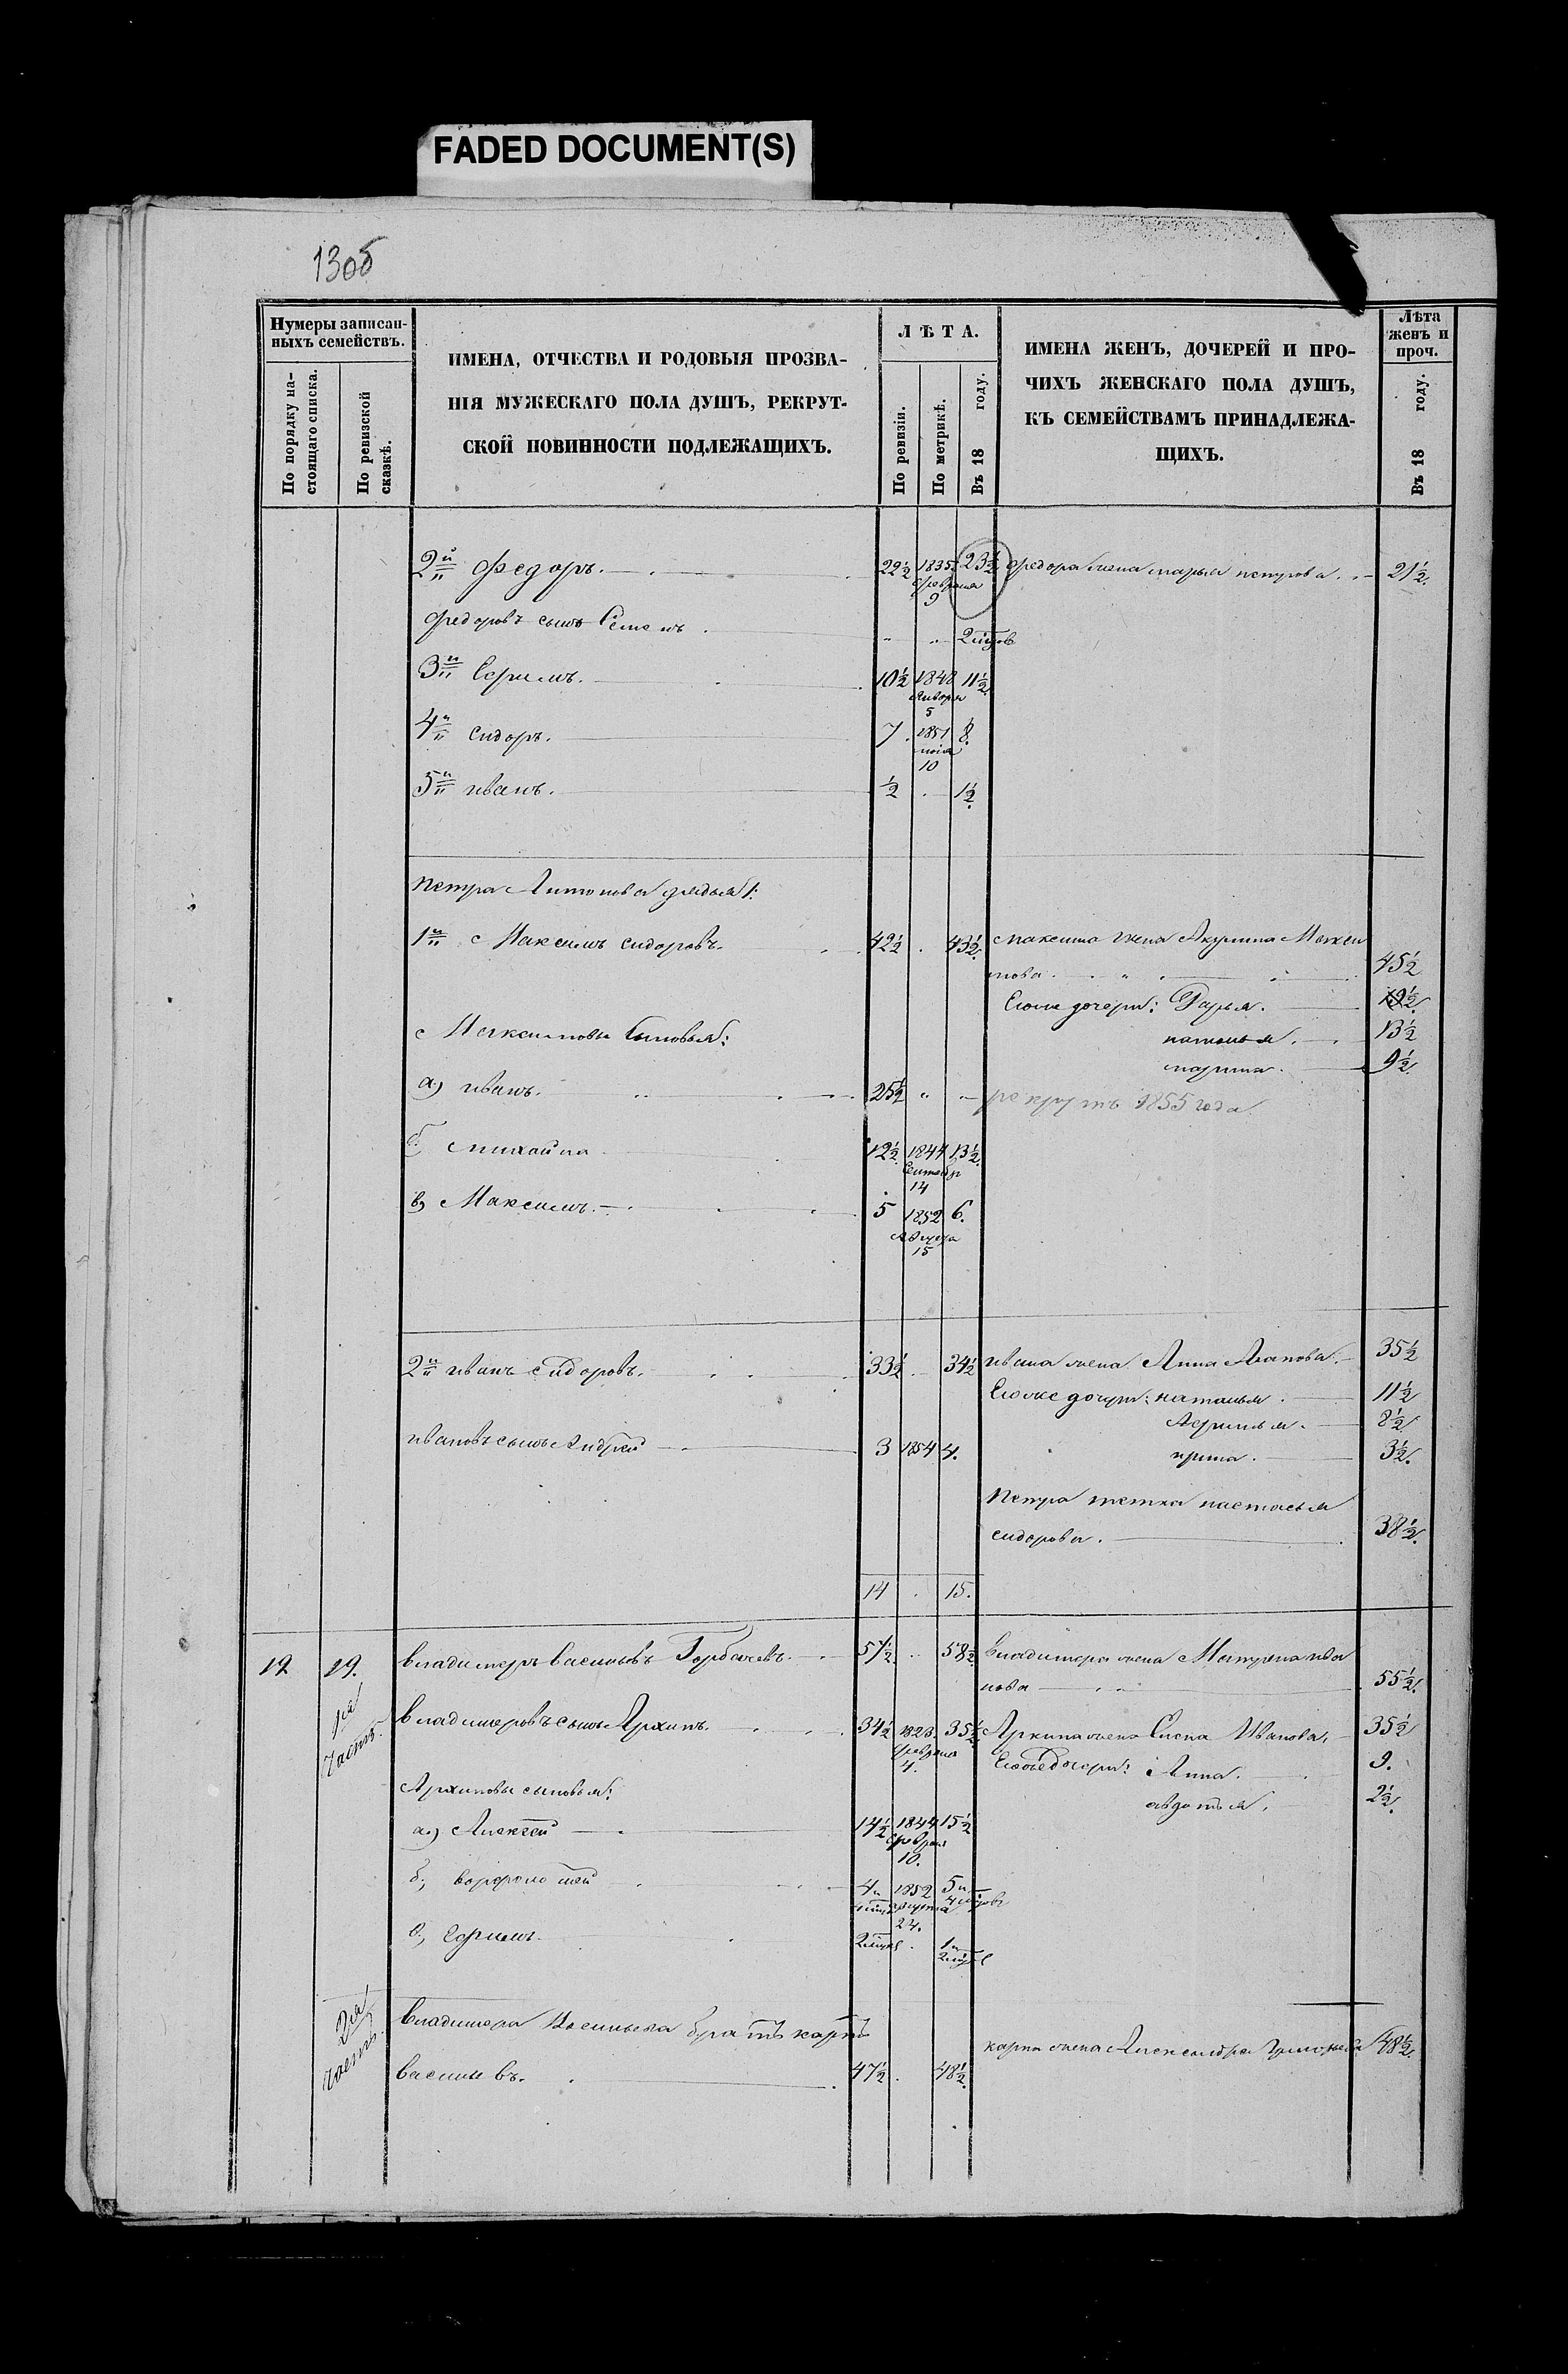 FADED DOCUMENT(S)
130б
Нумеры записан-
ныхъ семействъ.
По порядку на-
стоящаго списка.
По ревизской
сказкѣ.
ИМЕНА, ОТЧЕСТВА И РОДОВЫЯ ПРОЗВА-
НІЯ МУЖЕСКАГО ПОЛА ДУШЪ, РЕКРУТ-
СКОЙ ПОВИННОСТИ ПОДЛЕЖАЩИХЪ.
ЛѢТА.
По ревизіи.
По метрикѣ.
Въ 18 году.
ИМЕНА ЖЕНЪ, ДОЧЕРЕЙ И ПРО-
ЧИХЪ ЖЕНСКАГО ПОЛА ДУШЪ,
КЪ СЕМЕЙСТВАМЪ ПРИНАДЛЕЖА-
ЩИХЪ.
Лѣта
женъ и
проч.
Въ 18 году.
2й Федоръ. 22½ 1835 23½ Федора жена марья петрова. 21½
Февраля
9
Федоровъ сынъ Семенъ. 2 мцов
3й Ефимъ. 10½ 1848 11½
Января
5
4й Сидоръ. 7. 1851 8.
10
5й иванъ. ½ 1½.
Петра Антонова дядья:
1й Максимъ Сидоровъ. 42½ 43½ максима жена Акулина Макси
мова. 45½
Ево же дочери: Дарья. 19½
Максимовы сыновья: наталья. 13½
марина. 9½
а) иванъ. 25½ рекрутъ 1855 года
б) михайла 12½ 1844 13½
Сентебр
14
в) Максимъ. 5 1852 6.
Августа
15
2й иванъ Сидоровъ. 33½ 34½ ивана жена Анна Агапова. 35½
Ево же дочери: наталья. 11½
8½
ивановъ сынъ Андрей 3 1854 4. ирина. 3½.
Петра тетка настасья
сидорова. 38½.
14 15.
19 19. владимеръ васильевъ Горбачевъ. 57½ 58½ владимера жена Матрена ива
нова 55½.
1я часть.
владимеровъ сынъ Архипъ. 34½ 1823. 35½ Архипа жена Елена Иванова. 35½
Февраля
4.
Ево же дочери: Анна. 9.
Архиповы сыновья: авдотья. 2½
а) Алексей 14½ 1844 15½
Февраля
10.
б) варфоломей 4 1852 5
августа 4 мцов
24.
в) Ефимъ. 2 мцов 1 и
2 мцов
2я часть
владимера Васильева братъ карпъ
васильевъ. 47½ 48½. карпа жена Александра 48½.